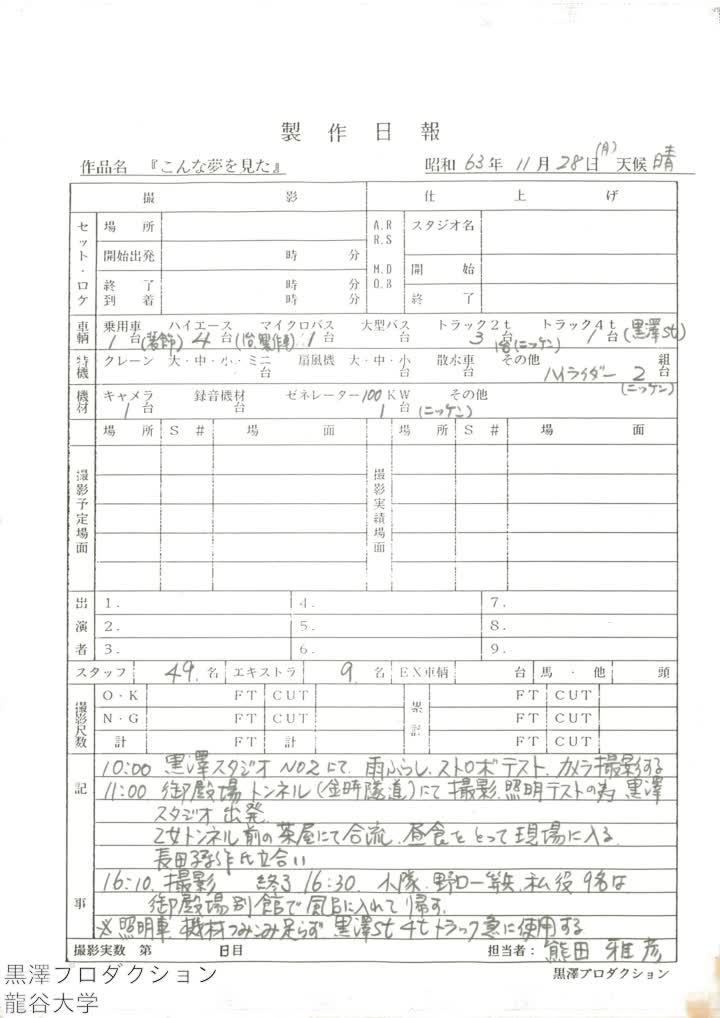 製作日報
作品名 『こんな夢を見た』 昭和 63年 11月 28日(月) 天候 晴
撮影 仕上げ
セット・ロケ 場所 A.R R.S スタジオ名
開始出発 時 分 M.D O.B 開始
終了 時 分 終了
到着 時 分
車輌 乗用車 ハイエース マイクロバス 大型バス トラック2t トラック4t (黒澤st)
1台(装飾) 4台 1台 台 3台(ニッケン) 1台
特機 クレーン 大・中・小・ミニ 扇風機 大・中・小 散水車 その他 組
台 台 台 ハイライダー 2台
(ニッケン)
機材 キャメラ 録音機材 ゼネレーター100KW その他
1台 台 1台(ニッケン)
場所 S# 場面 場所 S# 場面
撮影予定場面 撮影実績場面
出演者 1. 4. 7.
2. 5. 8.
3. 6. 9.
スタッフ 49名 エキストラ 9名 EX車輌 台 馬・他 頭
撮影尺数 O・K FT CUT 累計 FT CUT
N・G FT CUT FT CUT
計 FT 計 FT CUT
記事
10:00 黒澤スタジオ NO2にて、雨ふらし、ストロボテスト、カメラ撮影する
11:00 御殿場トンネル(金時隧道)にて撮影、照明テストの為 黒澤
スタジオ出発
乙女トンネル前の茶屋にて合流、昼食をとって現場に入る
長田孝作氏立合い
16:10 撮影 終了 16:30. 小隊、野口一等兵、私役 9名は
御殿場別館で風呂に入れて帰す.
※照明車、機材つみこみ足らず 黒澤st 4tトラック急に使用する
撮影実数 第 日目 担当者: 熊田雅彦
黒澤プロダクション
黒澤プロダクション
龍谷大学